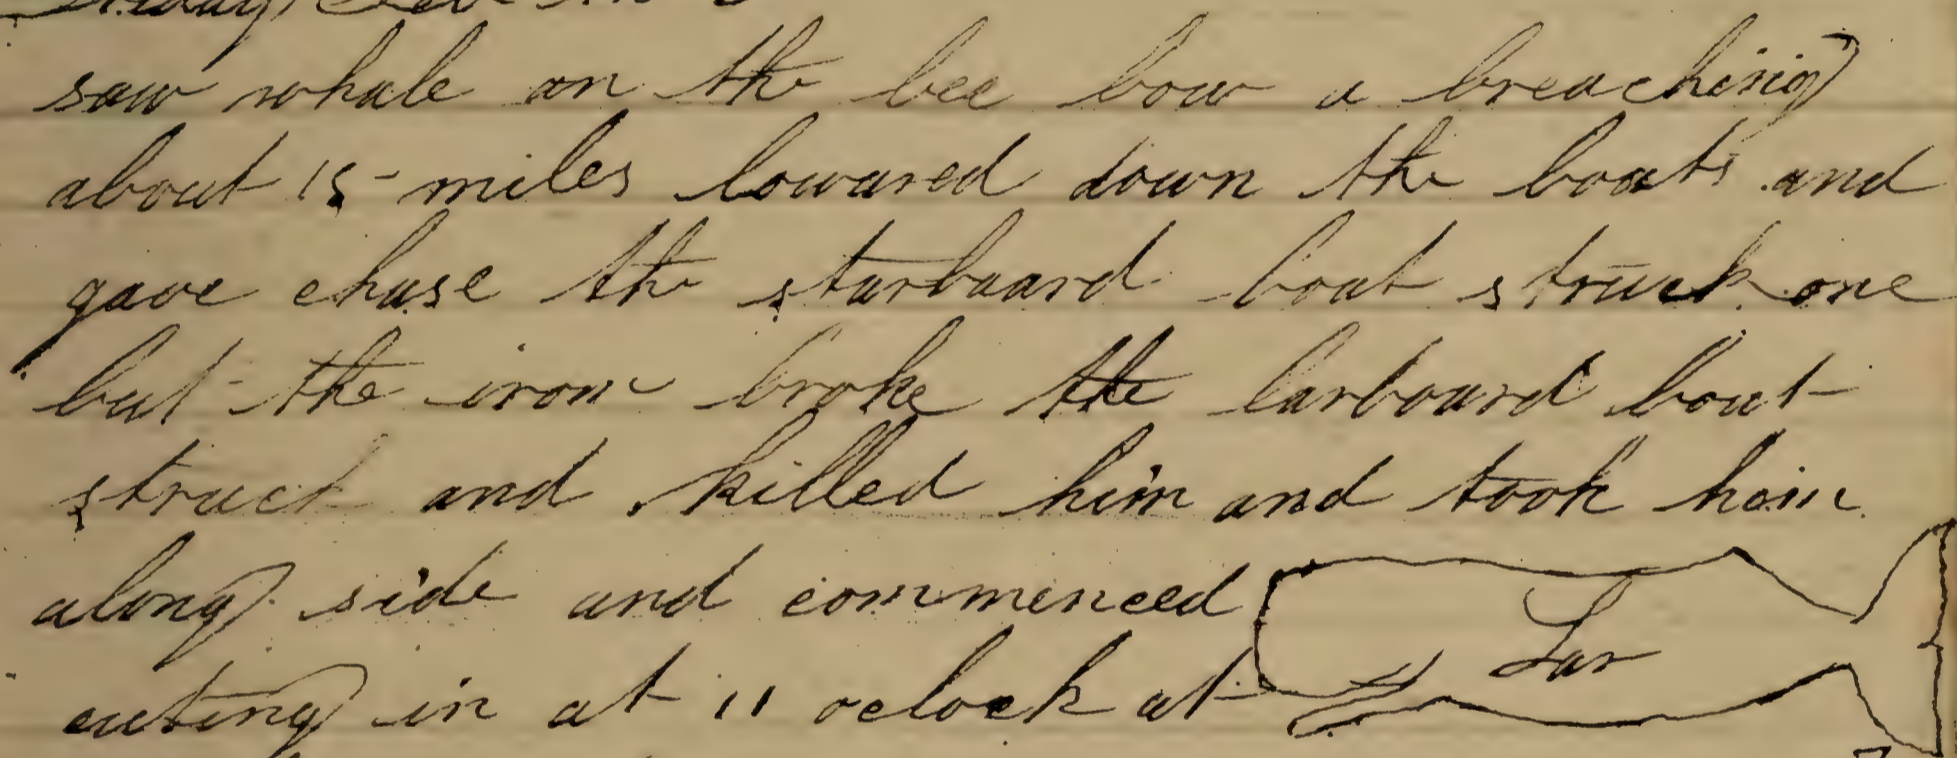 saw whale on the lee bow a breaching
about 15 miles lowared down the boats and
gave chase the starboard boat struck one
but the iron broke the larboard boat
struck and killed him and took him
along side and commenced
cuting in at 11 oclock at
Lar